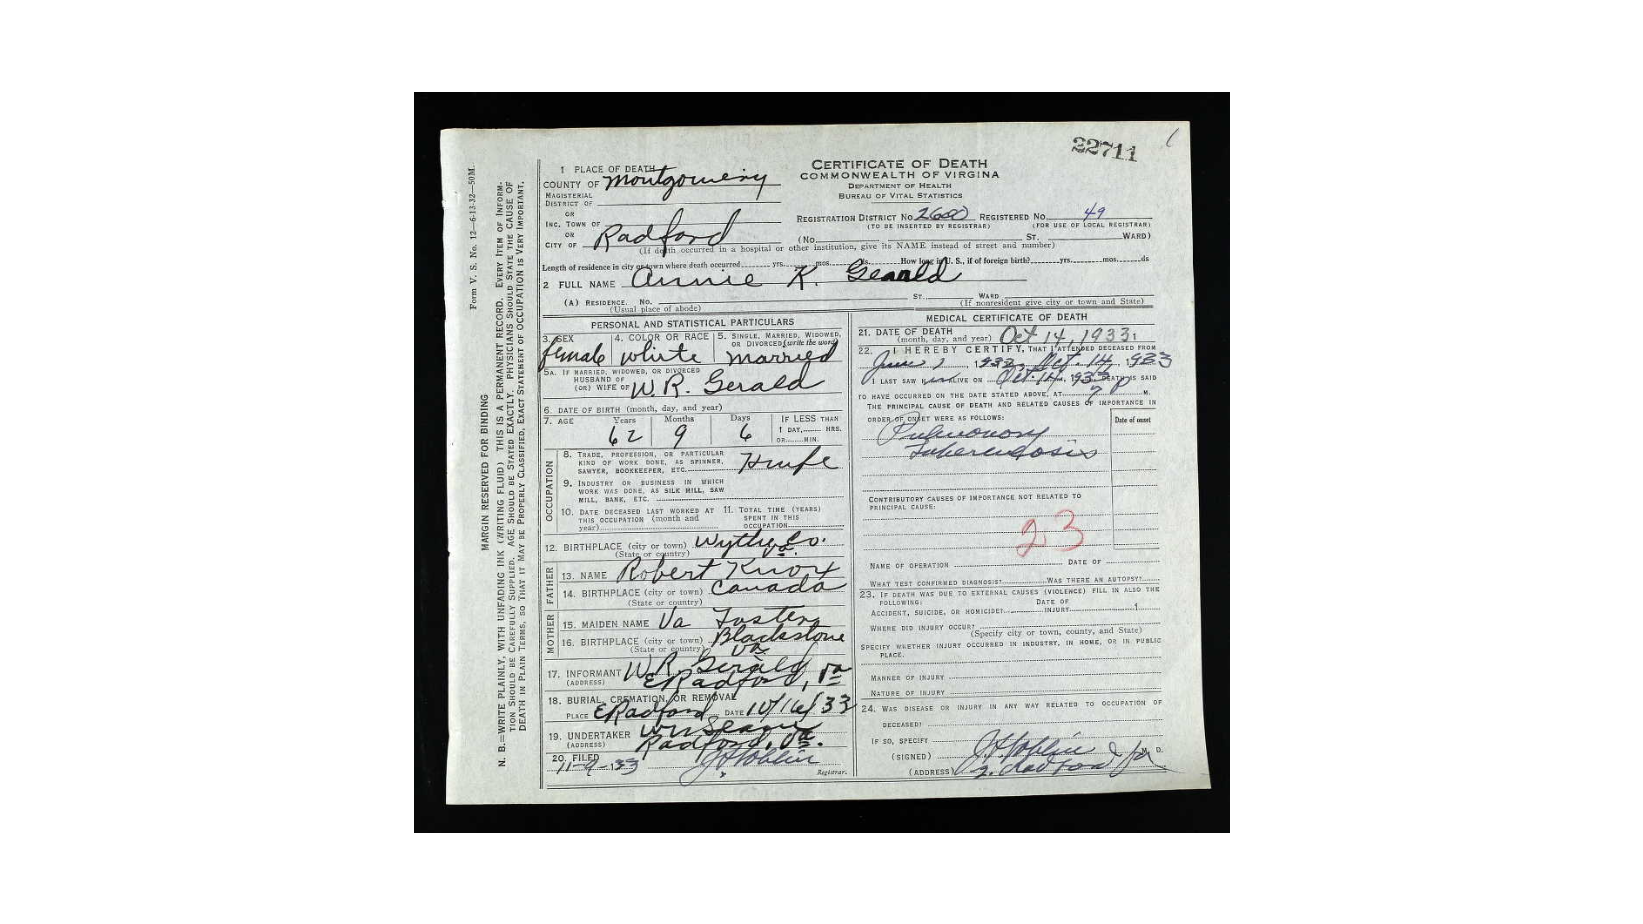 22711
CERTIFICATE OF DEATH
COMMONWEALTH OF VIRGINIA
DEPARTMENT OF HEALTH
BUREAU OF VITAL STATISTICS
1 PLACE OF DEATH
COUNTY OF Montgomery
MAGISTERIAL
DISTRICT OF
OR
INC. TOWN OF
OR
CITY OF Radford
REGISTRATION DISTRICT No. 2600 REGISTERED No. 49
(TO BE INSERTED BY REGISTRAR) (FOR USE OF LOCAL REGISTRAR)
(No. ST. WARD)
(If death occurred in a hospital or other institution, give its NAME instead of street and number)
Length of residence in city or town where death occurred yrs. mos. ds. How long in U. S., if of foreign birth? yrs. mos. ds
2 FULL NAME Annie K. Gerald
(A) RESIDENCE. No. ST. WARD
(Usual place of abode) (If nonresident give city or town and State)
PERSONAL AND STATISTICAL PARTICULARS
3. SEX 4. COLOR OR RACE 5. SINGLE, MARRIED, WIDOWED,
OR DIVORCED (write the word)
female white married
5A. IF MARRIED, WIDOWED, OR DIVORCED
HUSBAND OF
(OR) WIFE OF W. R. Gerald
6. DATE OF BIRTH (month, day, and year)
7. AGE Years Months Days IF LESS THAN
1 DAY, HRS.
OR MIN.
62 9 6
OCCUPATION
8. TRADE, PROFESSION, OR PARTICULAR
KIND OF WORK DONE, AS SPINNER,
SAWYER, BOOKKEEPER, ETC. Hwife
9. INDUSTRY OR BUSINESS IN WHICH
WORK WAS DONE, AS SILK MILL, SAW
MILL, BANK, ETC.
10. DATE DECEASED LAST WORKED AT 11. TOTAL TIME (YEARS)
THIS OCCUPATION (month and SPENT IN THIS
year) OCCUPATION
12. BIRTHPLACE (city or town) Wythe Co.
(State or country) Va.
FATHER
13. NAME Robert Knox
14. BIRTHPLACE (city or town) Canada
(State or country)
MOTHER
15. MAIDEN NAME Va Foster
16. BIRTHPLACE (city or town) Blackstone
(State or country) Va
17. INFORMANT W. R. Gerald
(ADDRESS) E Radford, Va
18. BURIAL, CREMATION, OR REMOVAL
PLACE E Radford DATE 10/16/33
19. UNDERTAKER
(ADDRESS) Radford, Va.
20. FILED 11-9-33
Registrar.
MEDICAL CERTIFICATE OF DEATH
21. DATE OF DEATH
(month, day, and year) Oct 14, 1933
22. I HEREBY CERTIFY, THAT I ATTENDED DECEASED FROM
June 1932, Oct. 14, 1933
I LAST SAW ALIVE ON Oct. 14, 1933 DEATH IS SAID
TO HAVE OCCURRED ON THE DATE STATED ABOVE, AT 7 P M.
THE PRINCIPAL CAUSE OF DEATH AND RELATED CAUSES OF IMPORTANCE IN
ORDER OF ONSET WERE AS FOLLOWS: Date of onset
Pulmonory
Tuberculosis
CONTRIBUTORY CAUSES OF IMPORTANCE NOT RELATED TO
PRINCIPAL CAUSE:
23
NAME OF OPERATION DATE OF
WHAT TEST CONFIRMED DIAGNOSIS? WAS THERE AN AUTOPSY?
23. IF DEATH WAS DUE TO EXTERNAL CAUSES (VIOLENCE) FILL IN ALSO THE
FOLLOWING: DATE OF
ACCIDENT, SUICIDE, OR HOMICIDE? INJURY 1
WHERE DID INJURY OCCUR?
(Specify city or town, county, and State)
SPECIFY WHETHER INJURY OCCURRED IN INDUSTRY, IN HOME, OR IN PUBLIC
PLACE.
MANNER OF INJURY
NATURE OF INJURY
24. WAS DISEASE OR INJURY IN ANY WAY RELATED TO OCCUPATION OF
DECEASED?
IF SO, SPECIFY
(SIGNED) M. D.
(ADDRESS) Radford Va
Form V. S. No. 12—6-13-32—50M.
MARGIN RESERVED FOR BINDING
N. B.—WRITE PLAINLY, WITH UNFADING INK (WRITING FLUID) THIS IS A PERMANENT RECORD. EVERY ITEM OF INFORMA-
TION SHOULD BE CAREFULLY SUPPLIED. AGE SHOULD BE STATED EXACTLY. PHYSICIANS SHOULD STATE THE CAUSE OF
DEATH IN PLAIN TERMS, SO THAT IT MAY BE PROPERLY CLASSIFIED. EXACT STATEMENT OF OCCUPATION IS VERY IMPORTANT.